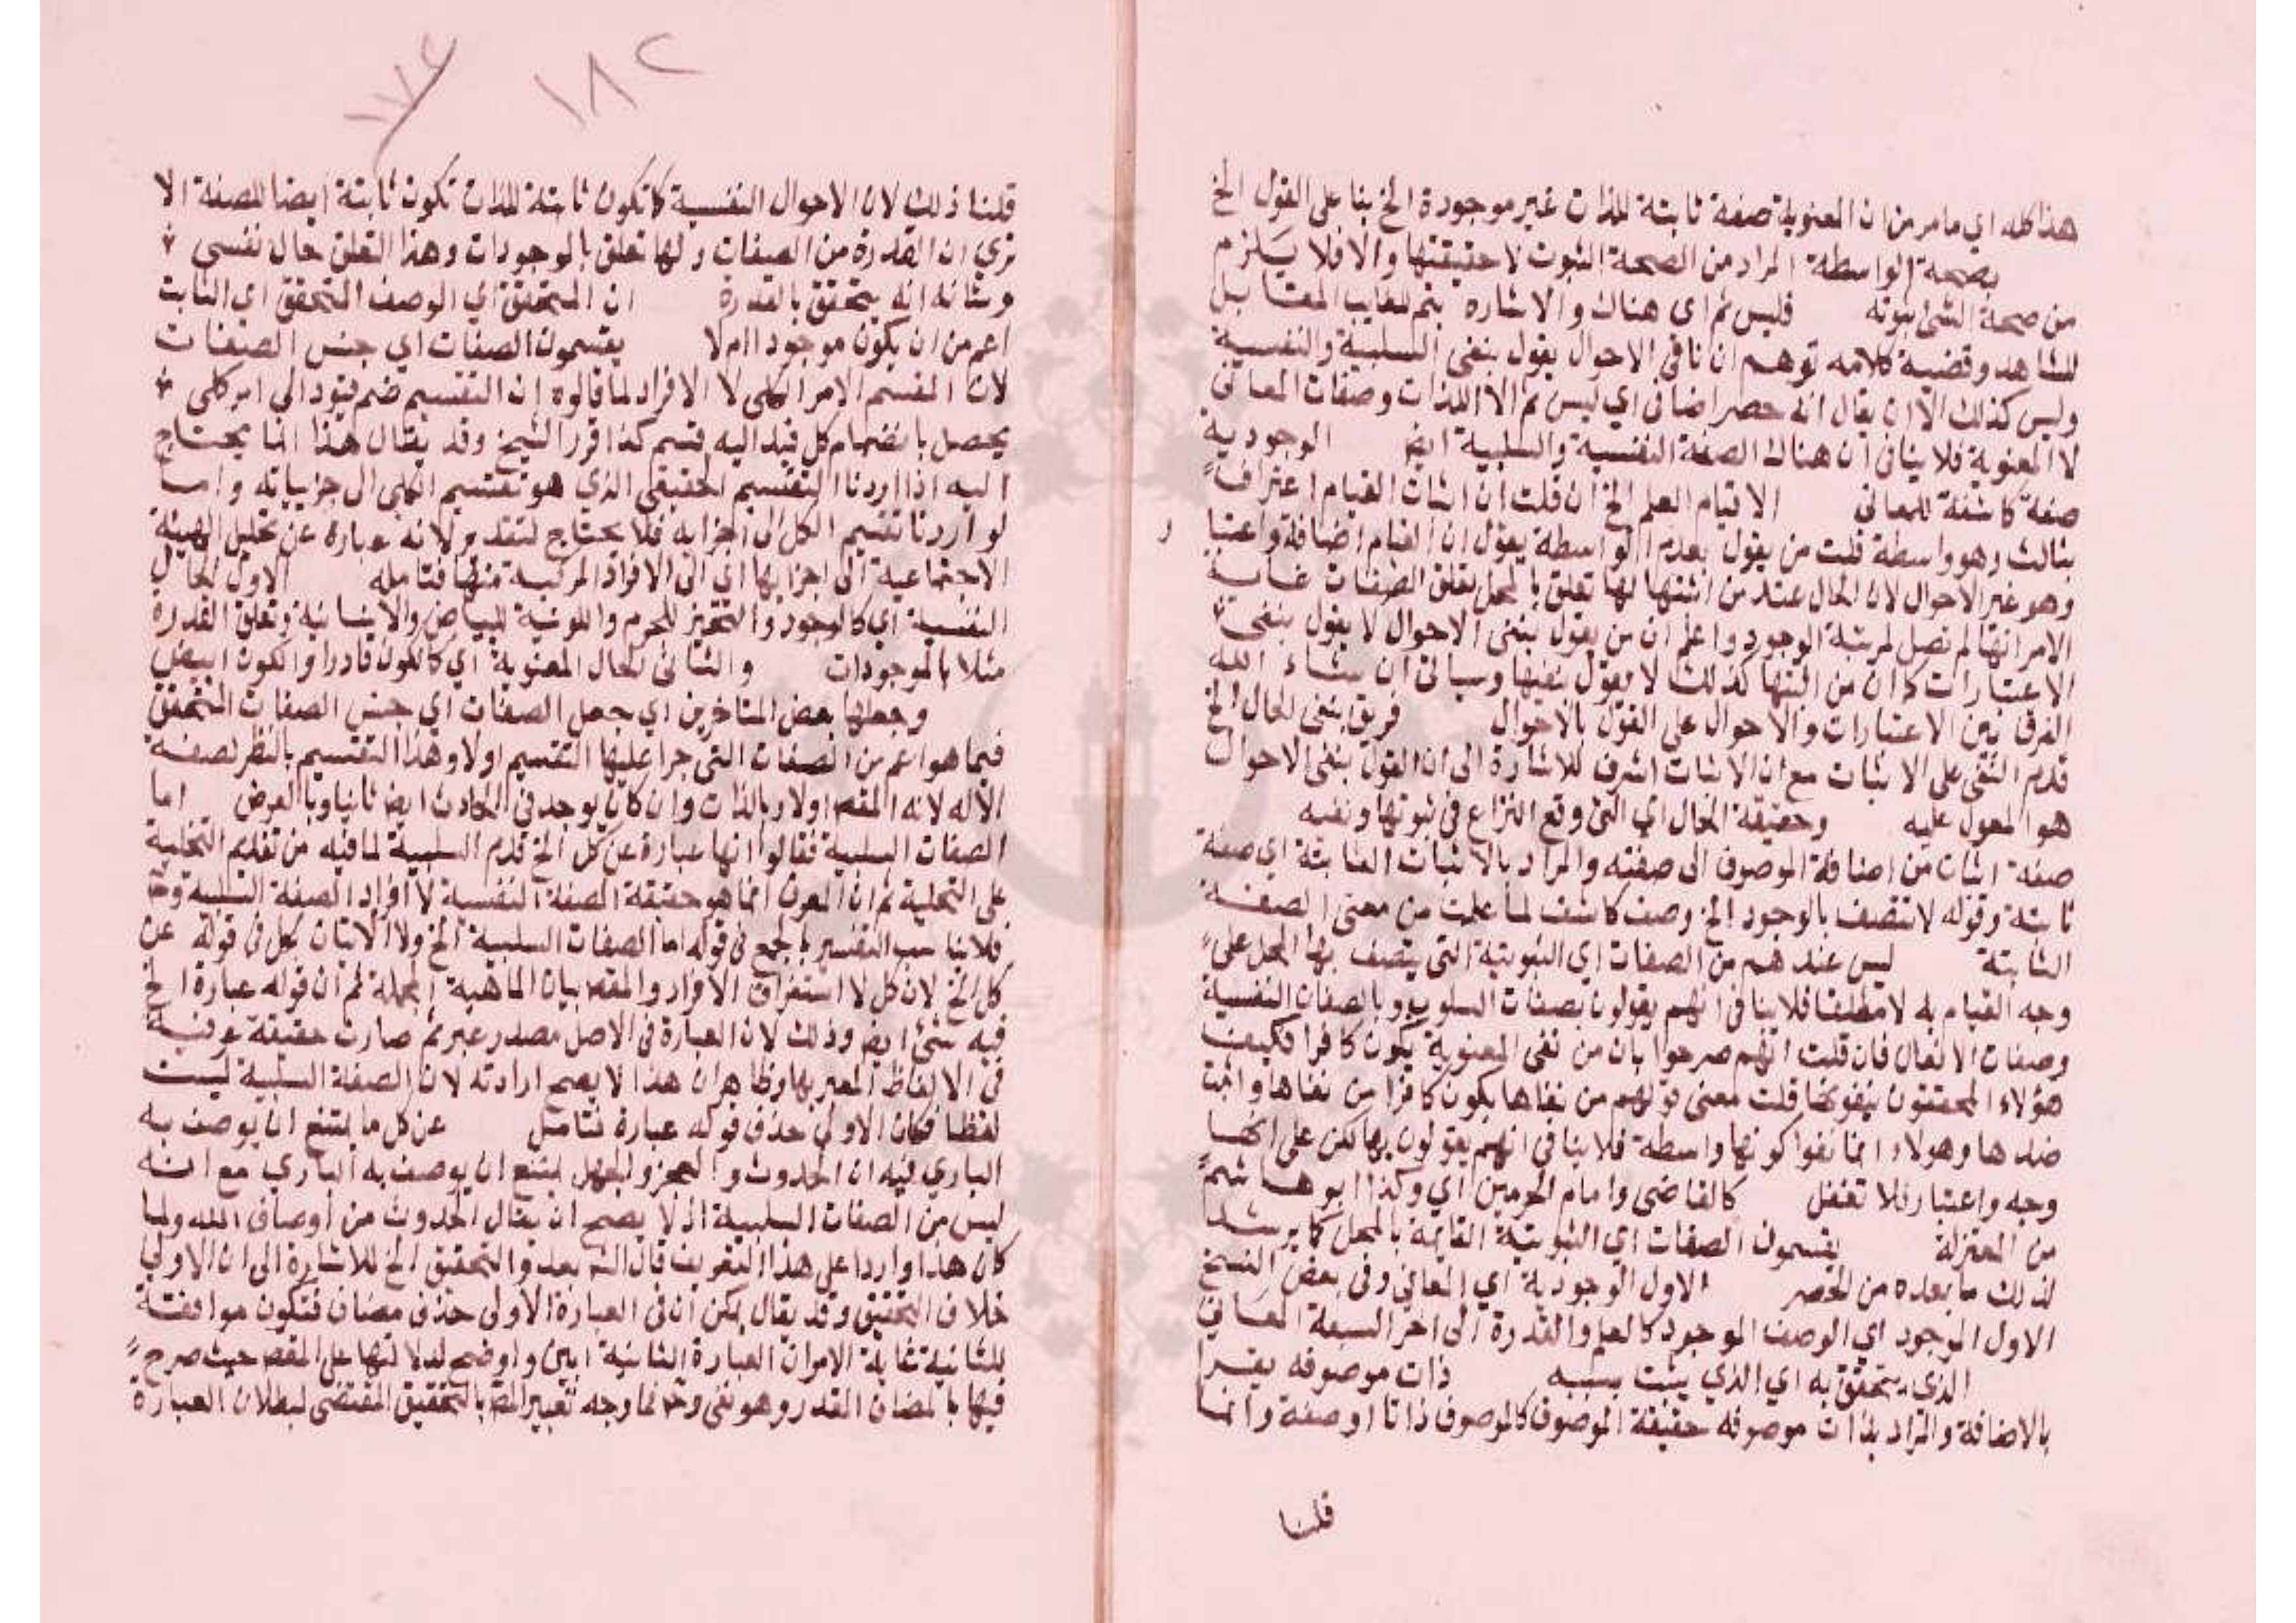 هذا كله اي ما مر من ان المعنوية صفة ثابتة للذات غير موجودة الخ بنا على القول الخ
بصحة الواسطة المراد من الصحة الثبوت لا حقيقتها والا فلا يلزم
من صحة الشئ ثبوته فليس ثم اي هناك والاشارة بثم للغايب المقابل
للشاهد وقضية كلامه توهم ان نافي الاحوال يقول بنفي السلبية والنفسية
وليس كذلك الا ان يقال انه حصر اضافي اي ليس ثم الا الذات وصفات المعاني
لا المعنوية فلا ينافي ان هناك الصفة النفسية والسلبية ايض الوجودية
صفة كاشفة للمعاني الا قيام العلم الخ ان قلت ان اثبات القيام اعتراف
بثالث وهو واسطة قلت من يقول بعدم الواسطة يقول ان القيام اضافة واعتبا ر
وهو غير الاحوال لان الحال عند من اثبتها لها تعلق بالمحل تعلق الصفات غاية
الامر انها لم تصل لمرتبة الوجود واعلم ان من يقول بنفي الاحوال لا يقول بنفي
الاعتبارات كما ان من اثبتها كذلك لا يقول بنفيها وسياتي ان شاء الله
الفرق بين الاعتبارات والاحوال على القول بالاحوال فريق بنفي الحال الخ
قدم النفي على الاثبات مع ان الاثبات اشرف للاشارة الى ان القول بنفي الاحوال
هو المعول عليه وحقيقة الحال اي التي وقع النزاع في ثبوتها ونفيه
صفة اثبات من اضافة الموصوف الى صفته والمراد بالاثبات الثابتة اي صفة
ثابتة وقوله لا تتصف بالوجود الخ وصف كاشف لما علمت من معنى الصفة
الثابتة ليس عندهم من الصفات اي الثبوتية التي يتصف بها المحل على
وجه القيام به لا مطلقا فلا ينافي انهم يقولون بصفات السلوب وبالصفات النفسية
وصفات الافعال فان قلت انهم صرحوا بان من نفى المعنوية يكون كافرا فكيف
هؤلاء المحققون ينفونها قلت معنى قولهم من نفاها يكون كافرا من نفاها واثبت
ضدها وهولاء انما نفوا كونها واسطة فلا ينافي انهم يقولون بها لكن على انها
وجه واعتبار فلا تغفل كالقاضي وامام الحرمين اي وكذا ابو هاشم
من المعتزلة يقسمون الصفات اي الثبوتية القايمة بالمحل كما يرشد
لذلك ما بعده من الحصر الاول الوجودية اي المعاني وفي بعض النسخ
الاول الموجود اي الوصف الموجود كالعلم والقدرة الى اخر السبعة المعاني
الذي يتحقق به اي الذي يثبت بسببه ذات موصوفه يقرا
بالاضافة والمراد بذات موصوفه حقيقة الموصوف كالموصوف ذاتا او صفة وانما
قلنا
١٨٢
قلنا ذلك لان الاحوال النفسية كما تكون ثابتة للذات تكون ثابتة ايضا للصفة الا
تري ان القدرة من الصفات ولها تعلق بالموجودات وهذا التعلق حال نفسي
وشانه انه يتحقق بالقدرة ان المتحقق اي الوصف المتحقق اي الثابت
اعم من ان يكون موجودا ام لا يقسمون الصفات اي جنس الصفات
لان المقسم الامر الكلي لا الافراد لما قالوه ان التقسيم ضم قيود الى امر كلي
يحصل بانضمام كل قيد اليه قسم كذا قرر الشيخ وقد يقال هذا انما يحتاج
اليه اذا اردنا التقسيم الحقيقي الذي هو تقسيم الكلي الى جزيياته واما
لو اردنا تقسيم الكل الى اجزايه فلا يحتاج لتقدير لانه عبارة عن تحليل الهيئة
الاجتماعية الى اجزايها اي الى الافراد المركبة منها فتامله الاول الحال
النفسية اي كالوجود والتحيز للجرم واللونية للبياض والانسانية وتعلق القدرة
مثلا بالموجودات والثاني الحال المعنوية اي كالكون قادرا والكون ابيض
وجعلها بعض المتاخرين اي جعل الصفات اي جنس الصفات المتحقق
فيما هو اعم من الصفات التي جرا عليها التقسيم اولا وهذا التقسيم بالنظر لصفة
الاله لانه المقص اولا وبالذات وان كان يوجد في الحادث ايض ثانيا وبالعرض اما
الصفات السلبية فقالوا انها عبارة عن كل الخ قدم السلبية لما فيه من تقديم التخلية
على التحلية ثم ان المعرف انما هو حقيقة الصفة النفسية لا افراد الصفة السلبية وح
فلا يناسب التفسير بالجمع في قوله اما الصفات السلبية الخ ولا الاتيان بكل في قوله عن
كل الخ لان كل لاستغراق الافراد والمقص بيان الماهية المجملة ثم ان قوله عبارة الخ
فيه شئ ايض وذلك لان العبارة في الاصل مصدر عبر ثم صارت حقيقة عرفية
في الالفاظ المعبر بها وظاهر ان هذا لا يصح ارادته لان الصفة السلبية ليست
لفظا فكان الاولى حذف قوله عبارة فتامل عن كل ما يمتنع ان يوصف به
الباري فيه ان الحدوث والعجز والجهل يمتنع ان يوصف به الباري مع انه
ليس من الصفات السلبية اذ لا يصح ان يقال الحدوث من اوصاف الله ولما
كان هذا واردا على هذا التعريف قال الش بعد والتحقيق الخ للاشارة الى ان الاولى
خلاف التحقيق وقد يقال يمكن ان في العبارة الاولى حذف مضاف فتكون موافقة
للثانية غاية الامر ان العبارة الثانية ابين واوضح لدلالتها على المقص حيث صرح
فيها بالمضاف المقدر وهو نفي وح فما وجه تعبير المص بالتحقيق المقتضى لبطلان العبارة